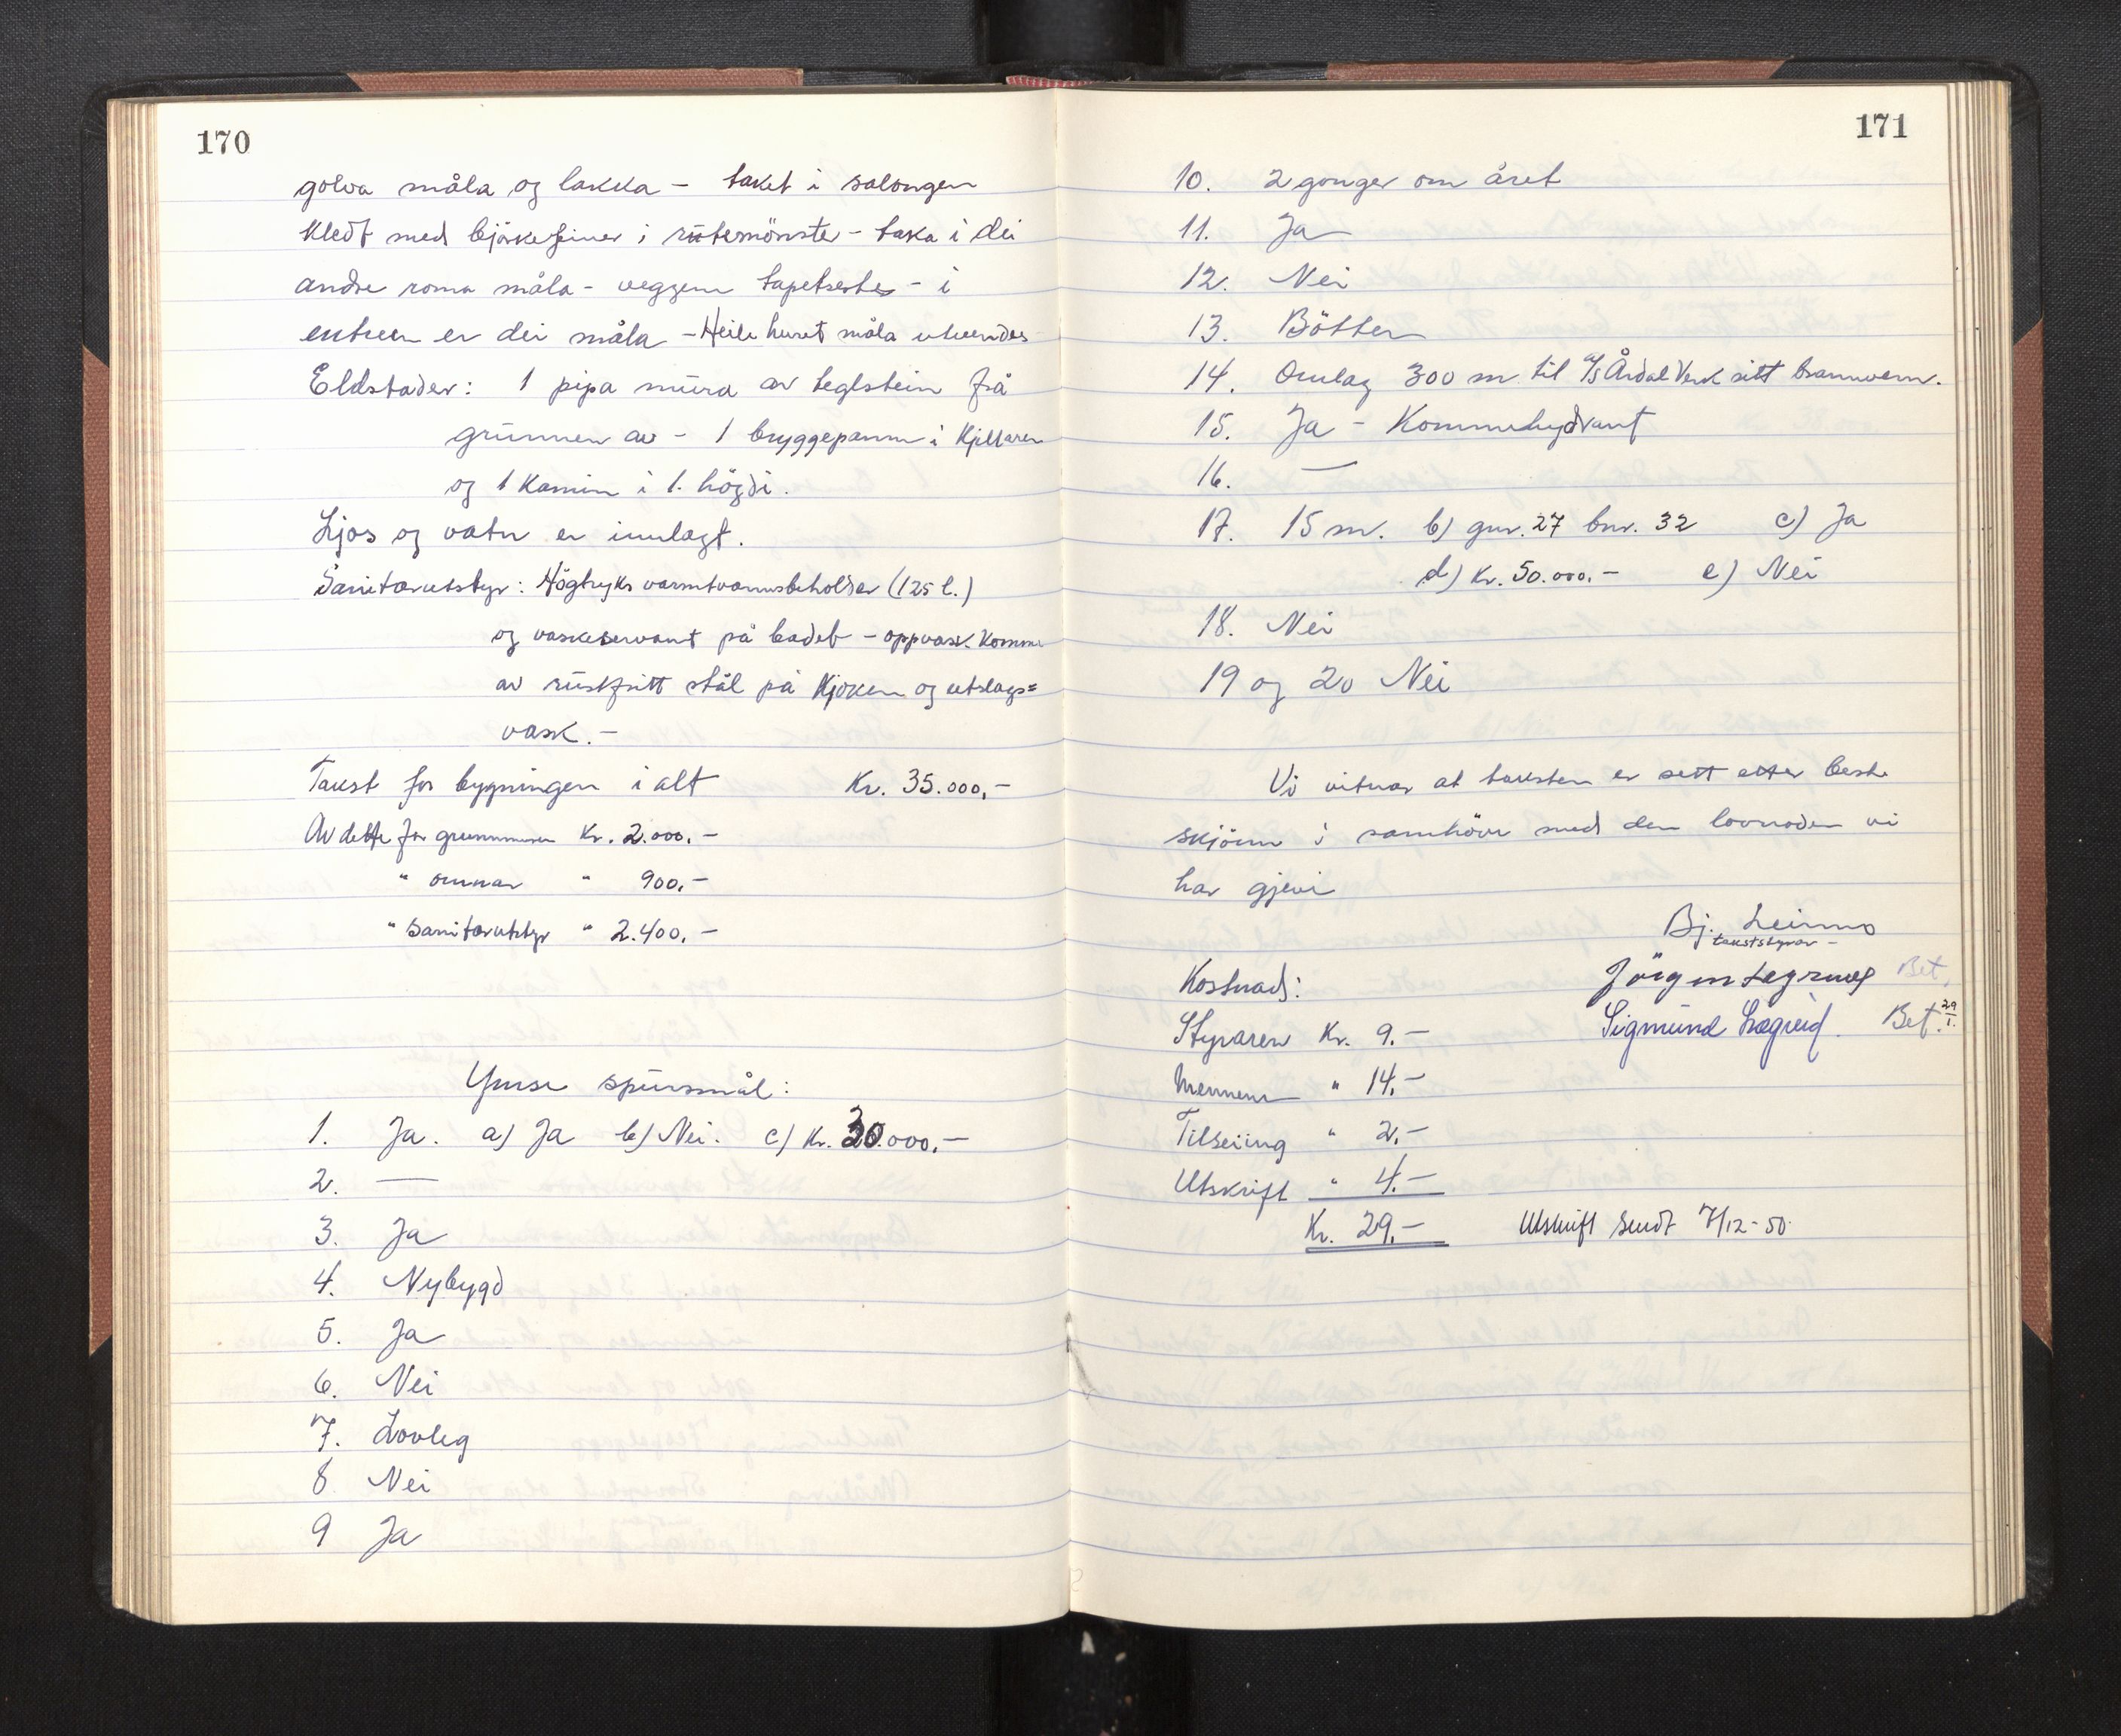 170
golva måla og lakka - taket i salongen
kledt med bjørkefiner i rutemönster - taka i dei
andre roma måla - veggene tapetserte - i
entreen er dei måla - Heile huset måla utvendes
Eldstader: 1 pipa mura av teglstein frå
grunnen av - 1 bryggepanne i kjellaren
og 1 kamin i 1. högdi.
Ljos og vatn er innlagt.
Sanitærutstyr: Högtryks varmtvannsbeholder (125 l.)
og vaskeservant på badet - oppvask.komme
av rustfritt stål på kjøken og utslags=
vask.-
Takst for bygningen i alt Kr. 35.000,-
Av dette for grunnmuren Kr. 2.000.-
" omnar " 900,-
" sanitærutstyr " 2.400,-
Ymse spursmål:
1. Ja. a) Ja b) Nei. c) Kr. 30.000,-
2. —
3. Ja
4. Nybygd
5. Ja
6. Nei
7. Lovleg
8 Nei
9 Ja
171
10. 2 gonger om året
11. Ja
12. Nei
13. Bötter
14. Omlag 300 m til A/S Årdal Verk sitt brannvern.
15. Ja - Kommehydrant
16. —
17. 15 m. b) gnr. 27 bnr. 32 c) Ja
d) Kr. 50.000.- e) Nei
18. Nei
19 og 20 Nei
Vi vitnar at taksten er sett etter beste
skjönn i samhöve med den lovnaden vi
har gjevi
Bj. Leirmo
takststyrar -
Kostnad: Jörgen Bet.
Styraren Kr. 9.- Sigmund Lægreid. Bet. 29/1.
Mennene " 14.-
Tilseiing " 2.-
Utskrift " 4.-
Kr. 29.- Utskrift sendt 7/12-50.